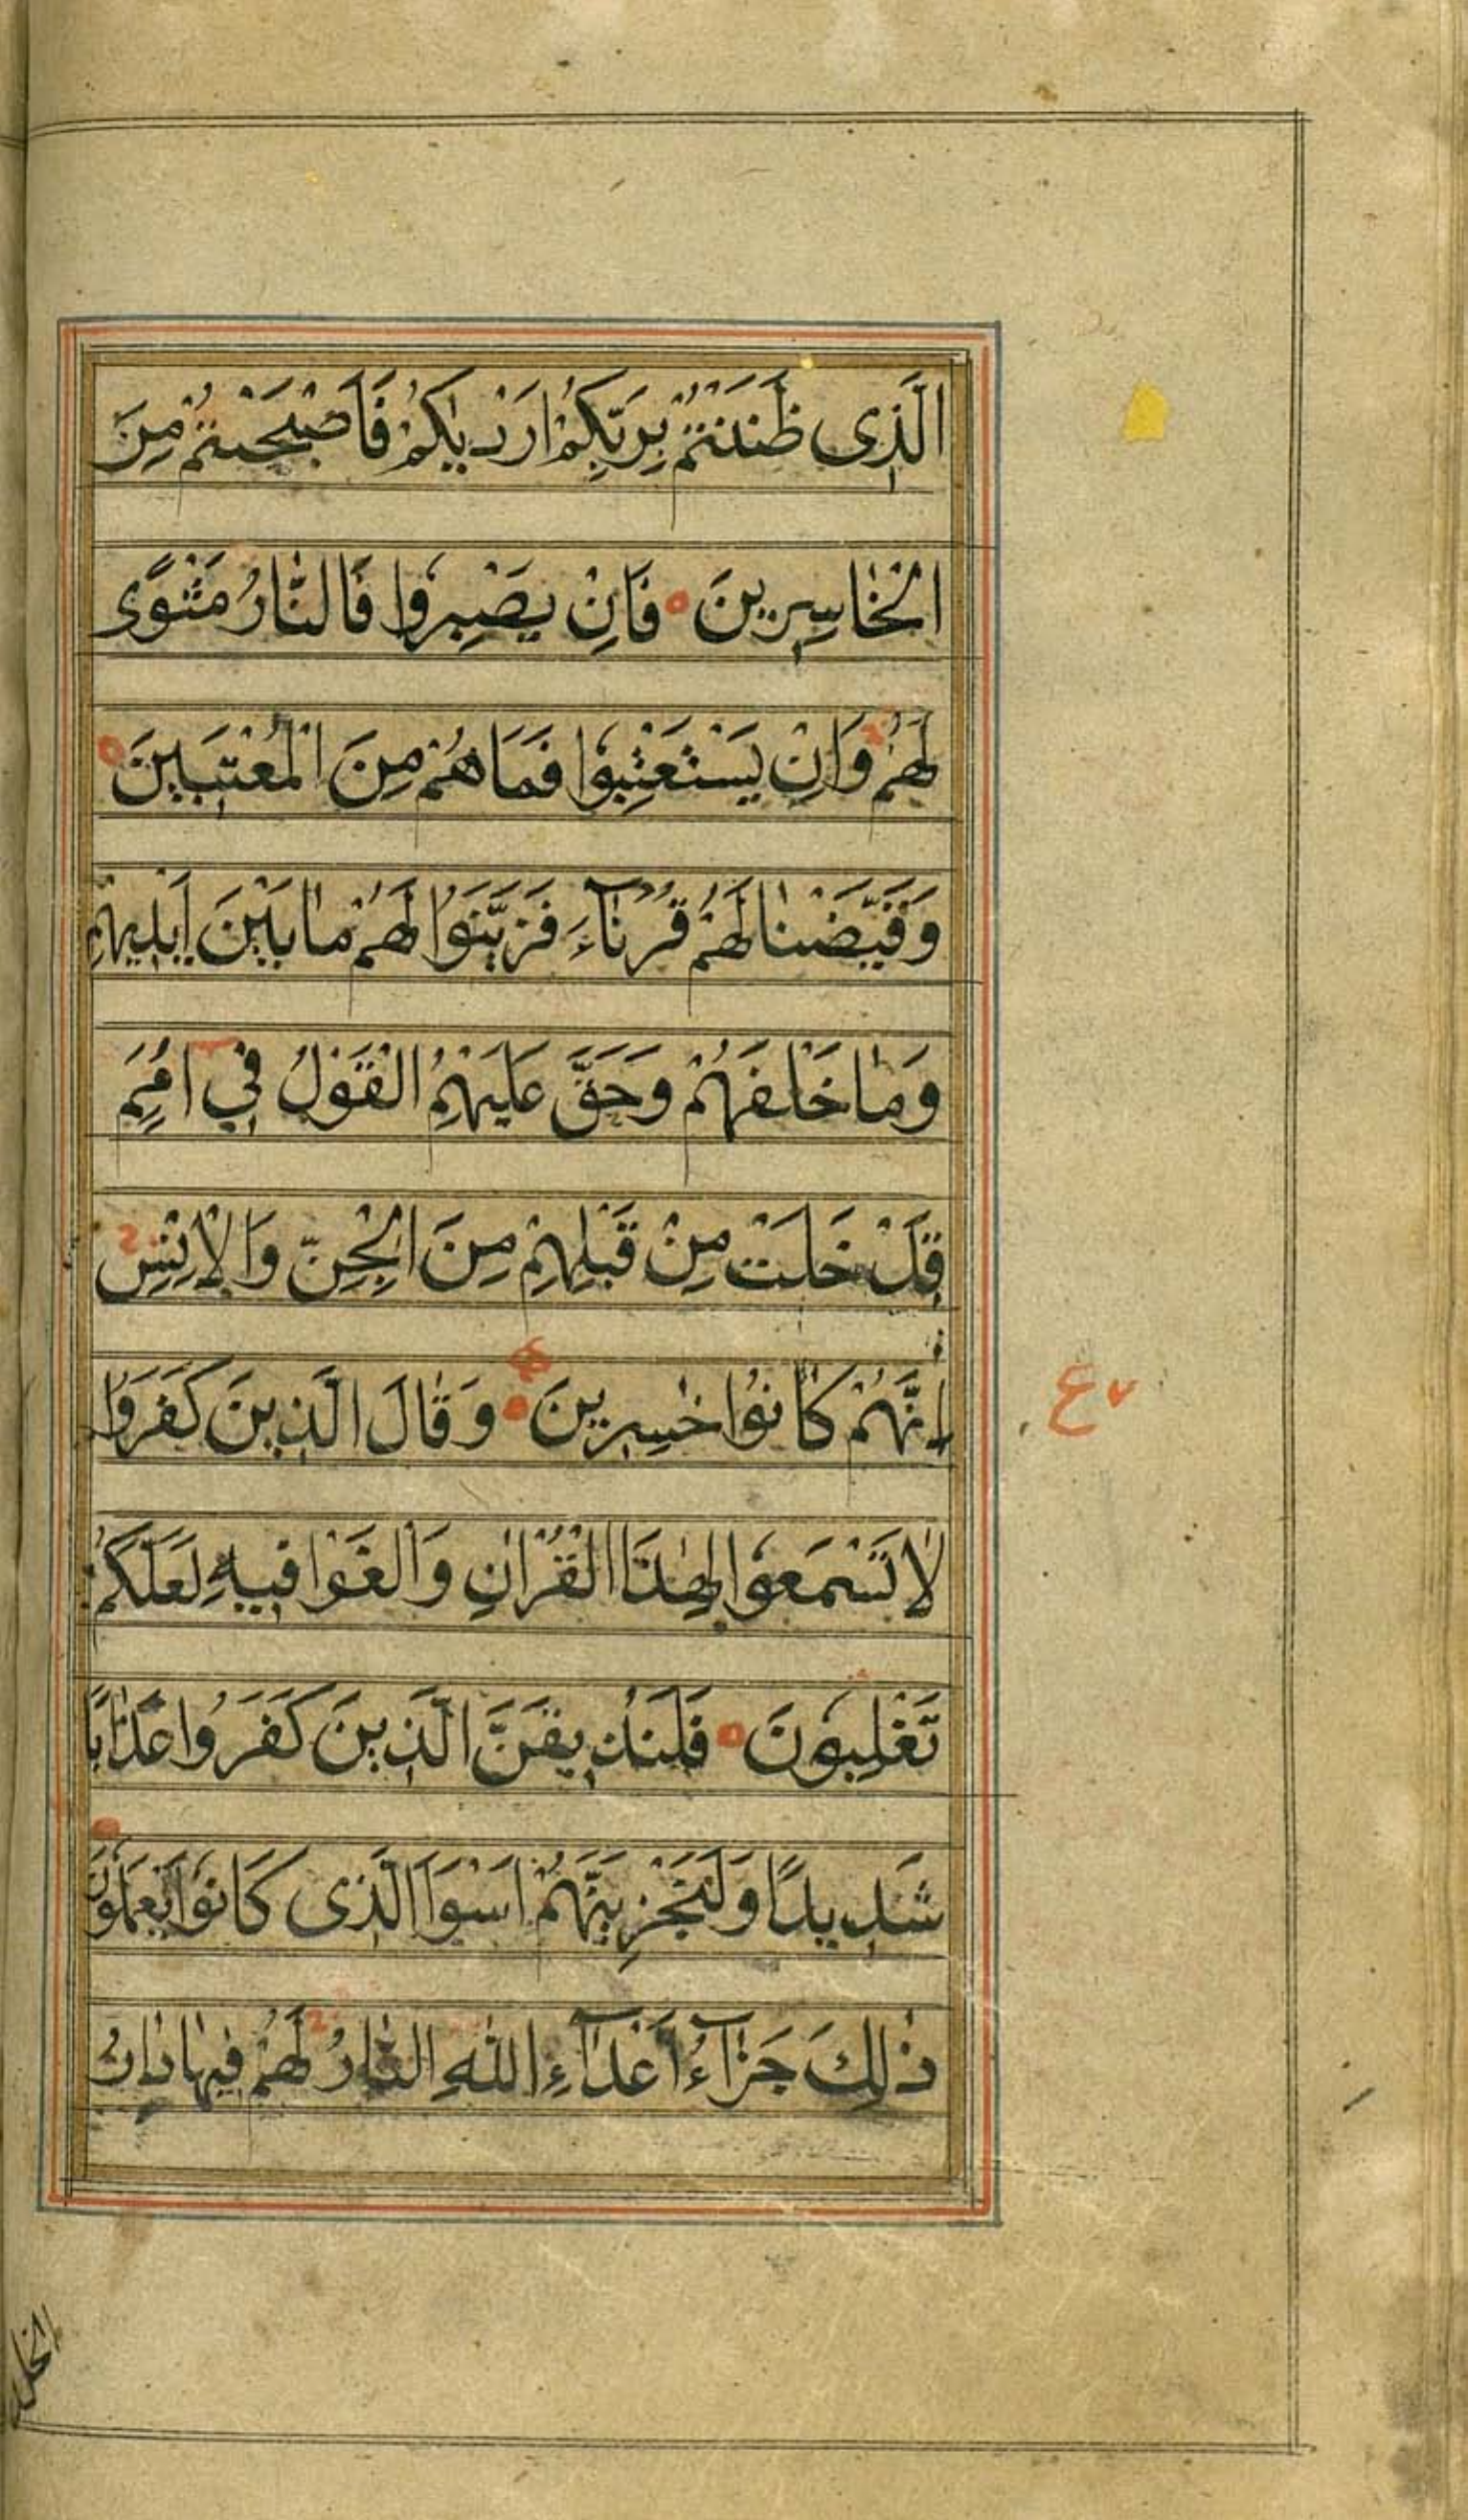 الَّذِى ظَنَنْتُمْ بِرَبِّكُمْ اَرْدٰيكُمْ فَاَصْبَحْتُمْ مِنَ
الْخٰاسِرِينَ فَاِنْ يَصْبِرُوا فَالنّٰارُ مَثْوًى
لَهُمْ وَاِنْ يَسْتَعْتِبُوا فَمَا هُمْ مِنَ الْمُعْتَبِينَ
وَقَيَّضْنٰا لَهُمْ قُرَنٰآءَ فَزَيَّنُوا لَهُمْ مٰا بَيْنَ اَيْدِيهِمْ
وَمٰا خَلْفَهُمْ وَحَقَّ عَلَيْهِمُ الْقَوْلُ فِي اُمَمٍ
قَدْ خَلَتْ مِنْ قَبْلِهِمْ مِنَ الْجِنِّ وَالْاِنْسِ
اِنَّهُمْ كٰانُوا خٰسِرِينَ وَقٰالَ الَّذِينَ كَفَرُوا
ع ٧
لٰا تَسْمَعُوا لِهٰذَا الْقُرْاٰنِ وَالْغَوْا فِيهِ لَعَلَّكُمْ
تَغْلِبُونَ فَلَنُذِيقَنَّ الَّذِينَ كَفَرُوا عَذٰابًا
شَدِيدًا وَلَنَجْزِيَنَّهُمْ اَسْوَاَ الَّذِى كَانُوا يَعْمَلُونَ
ذٰلِكَ جَزٰآءُ اَعْدٰآءِ اللّٰهِ النّٰارُ لَهُمْ فِيهٰا دٰارُ
الخلد